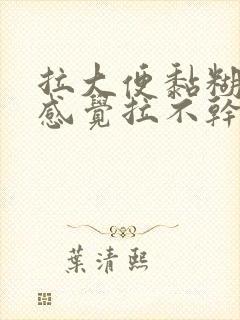 拉大便黏糊
感覺拉不幹
葉清熙